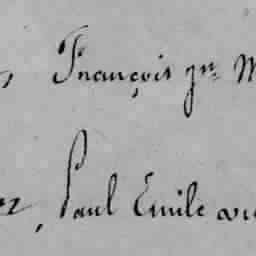 François jn
Paul Emile